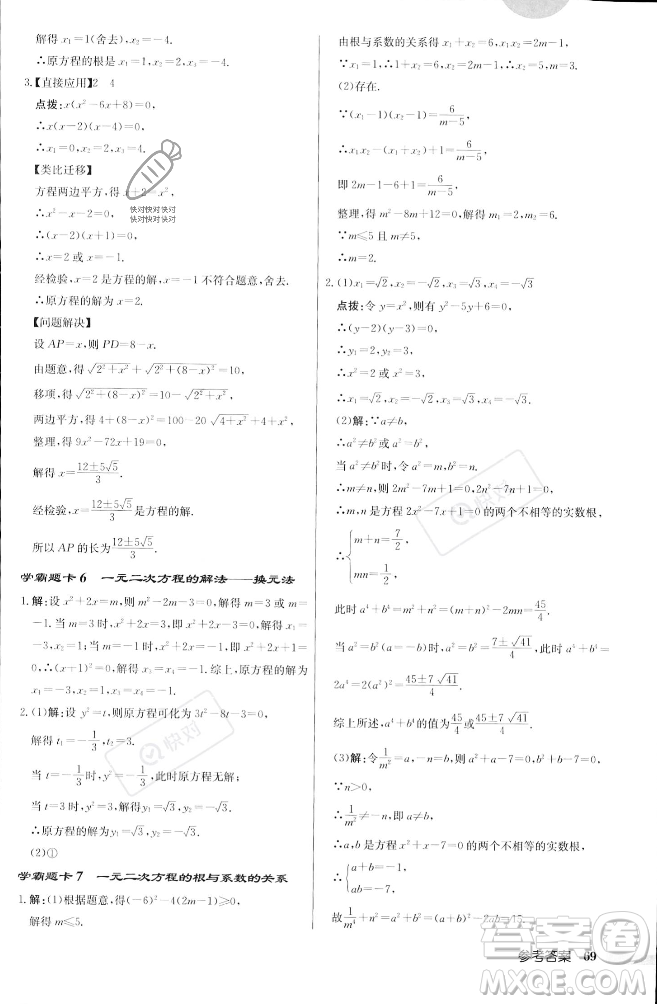 解得 x₁=1(舍去),x₂=-4.
∴原方程的根是x₁=1,x₂=-4.
3.【直接应用】2 4
点拨:x(x²-6x+8)=0,
∴x(x-2)(x-4)=0,
∴x₁=0,x₂=2,x₃=4.
【类比迁移】
方程两边平方,得x+2=x²,
∴x²-x-2=0,
∴(x-2)(x+1)=0,
∴x=2或x=-1.
经检验,x=2是方程的解,x=-1不符合题意,舍去.
∴原方程的解为x=2.
【问题解决】
设AP=x,则PD=8-x.
由题意,得√(2²+x²)+√(2²+(8-x)²)=10,
移项,得√(2²+(8-x)²)=10-√(2²+x²),
两边平方,得4+(8-x)²=100-20√(4+x²)+4+x²,
整理,得9x²-72x+19=0,
解得x=(12±5√5)/3.
经检验,x=(12±5√5)/3是方程的解,
所以AP的长为(12±5√5)/3.
学霸题卡6 一元二次方程的解法——换元法
1.解:设x²+2x=m,则m²-2m-3=0,解得m=3或m=
-1.当m=3时,x²+2x-3=0,∴(x-1)(x+3)=0,
∴x₁=-3,x₂=1.当m=-1时,x²+2x=-1,x²+2x+1=
0,∴(x+1)²=0,∴x₃=x₄=-1.综上,原方程的解为
x₁=-3,x₂=1,x₃=x₄=-1.
2.(1)解:设 =t,则原方程可化为3t²-8t-3=0,
解得t₁=-1/3,t₂=3.
当t=-1/3时,y²=-1/3,此时原方程无解.
当t=3时,y²=3,解得y₁=√3,y₂=-√3.
∴原方程的解为y₁=√3,y₂=-√3.
(2)①
学霸题卡7 一元二次方程的根与系数的关系
1.解:(1)根据题意,得(-6)²-4(2m-1)≥0,
解得m≤5.
由根与系数的关系得x₁+x₂=6,x₁x₂=2m-1,
∵x₁=1,∴1+x₂=6,x₂=2m-1,∴x₂=5,m=3.
(2)存在.
∵(x₁-1)(x₂-1)=6/(m-5),
∴x₁x₂-(x₁+x₂)+1=6/(m-5),
即2m-1-6+1=6/(m-5),
整理,得m²-8m+12=0,解得m₁=2,m₂=6.
∵m≤5且m≠5,
∴m=2.
2.(1)x₁=√2,x₂=-√2,x₃=√3,x₄=-√3
点拨:令y=x²,则有y²-5y+6=0,
∴(y-2)(y-3)=0,
∴y₁=2,y₂=3,
∴x²=2或3,
∴x₁=√2,x₂=-√2,x₃=√3,x₄=-√3.
(2)解:∵a≠b,
∴a²≠b²或a²=b².
当a²≠b²时,令a²=m,b²=n.
∴m≠n,则2m²-7m+1=0,2n²-7n+1=0,
∴m,n是方程2x²-7x+1=0的两个不相等的实数根,
∴{m+n=7/2,
mn=1/2.
此时a⁴+b⁴=m²+n²=(m+n)²-2mn=45/4.
当a²=b²(a=-b)时,a²=b²=(7±√41)/4,此时a⁴+b⁴=
2a⁴=2(a²)²=(45±7√41)/4.
综上所述,a⁴+b⁴的值为45/4或(45±7√41)/4.
(3)解:令1/m²=a,-n=b,则a²+a-7=0,b²+b-7=0,
∵n>0,
∴1/m²≠-n,即a≠b,
∴a,b是方程x²+x-7=0的两个不相等的实数根,
∴{a+b=-1,
ab=-7.
故1/m⁴+n²=a²+b²=(a+b)²-2ab=15.
参考答案 69
快对快对快对
快对快对快对
快对
快对
答案卷